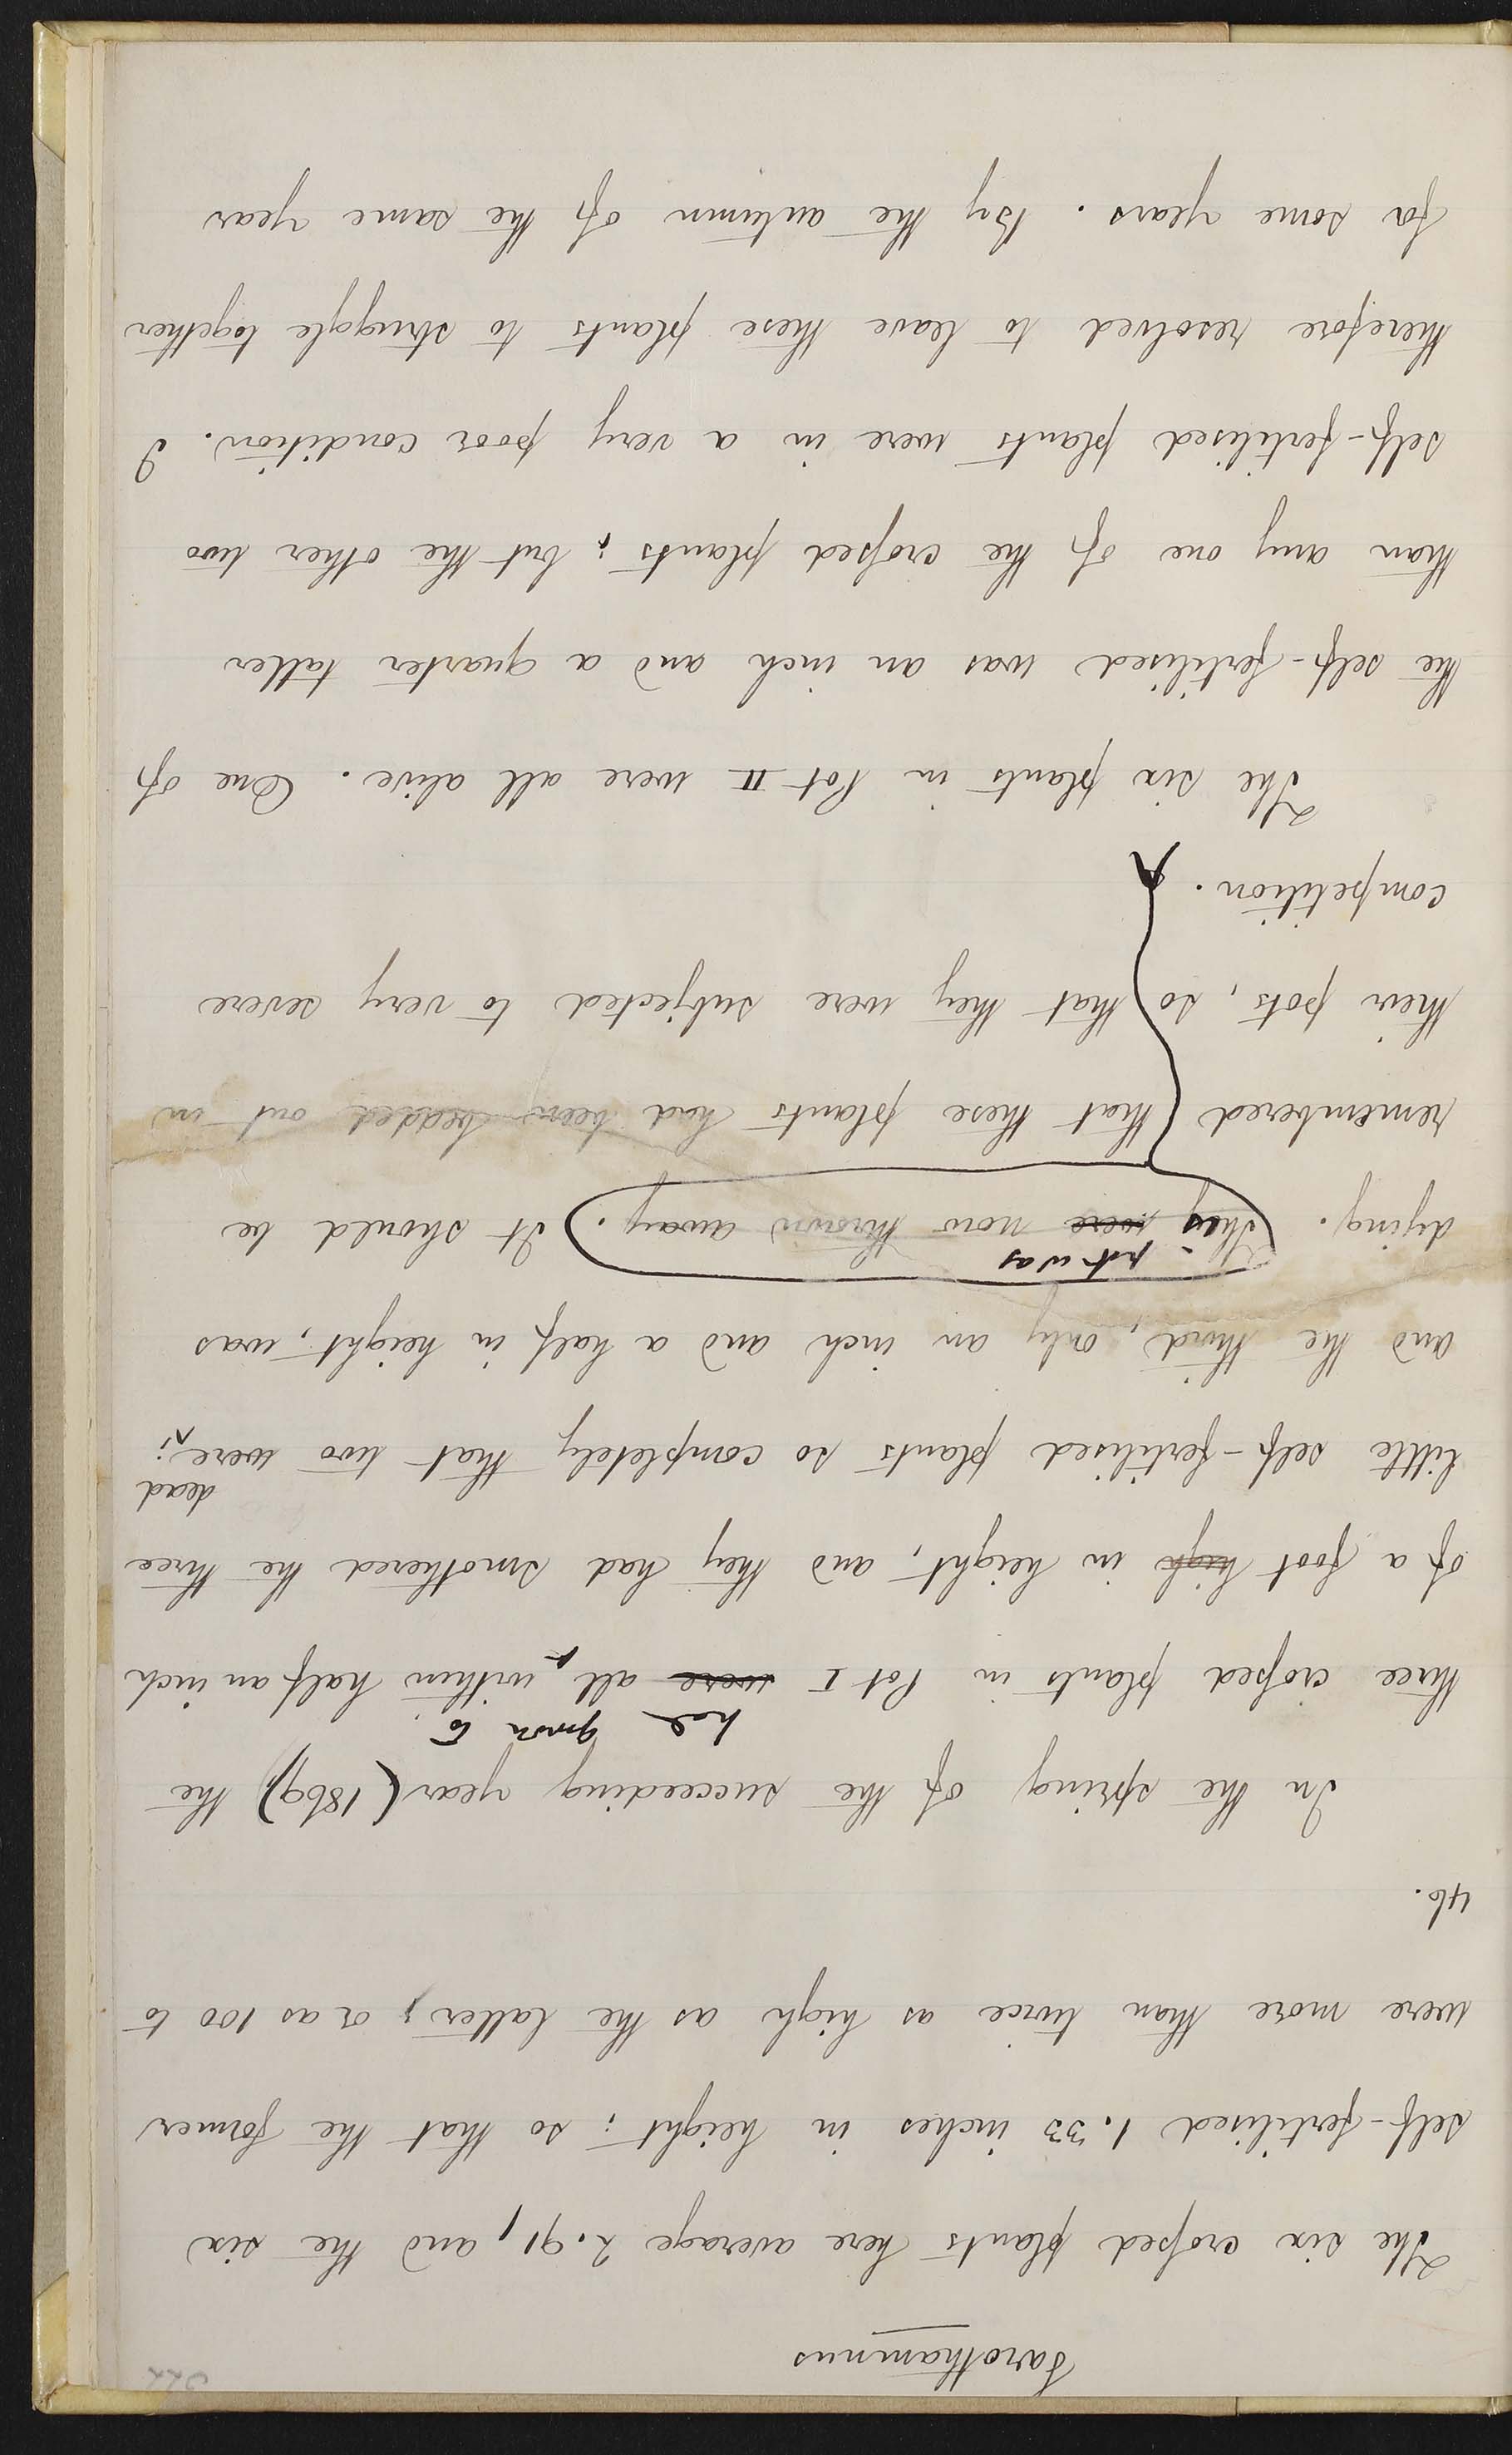 Sarothamnus
The six crossed plants here average 2.91, and the six
self-fertilised 1.33 inches in height; so that the former
were more than twice as high as the latter, or as 100 to
46.
In the spring of the succeeding year (1869) the
had grown to
three crossed plants in Pot I were all within half an inch
of a foot high in height, and they had smothered the three
dead
little self-fertilised plants so completely that two were;
and the third, only an inch and a half in height, was
pot was
dying. They were now thrown away. It should be
remembered that these plants had been bedded out in
their pots, so that they were subjected to very severe
competition.
The six plants in Pot II were all alive. One of
the self-fertilised was an inch and a quarter taller
than any one of the crossed plants; but the other two
self-fertilised plants were in a very poor condition. I
therefore resolved to leave these plants to struggle together
for some years. By the autumn of the same year